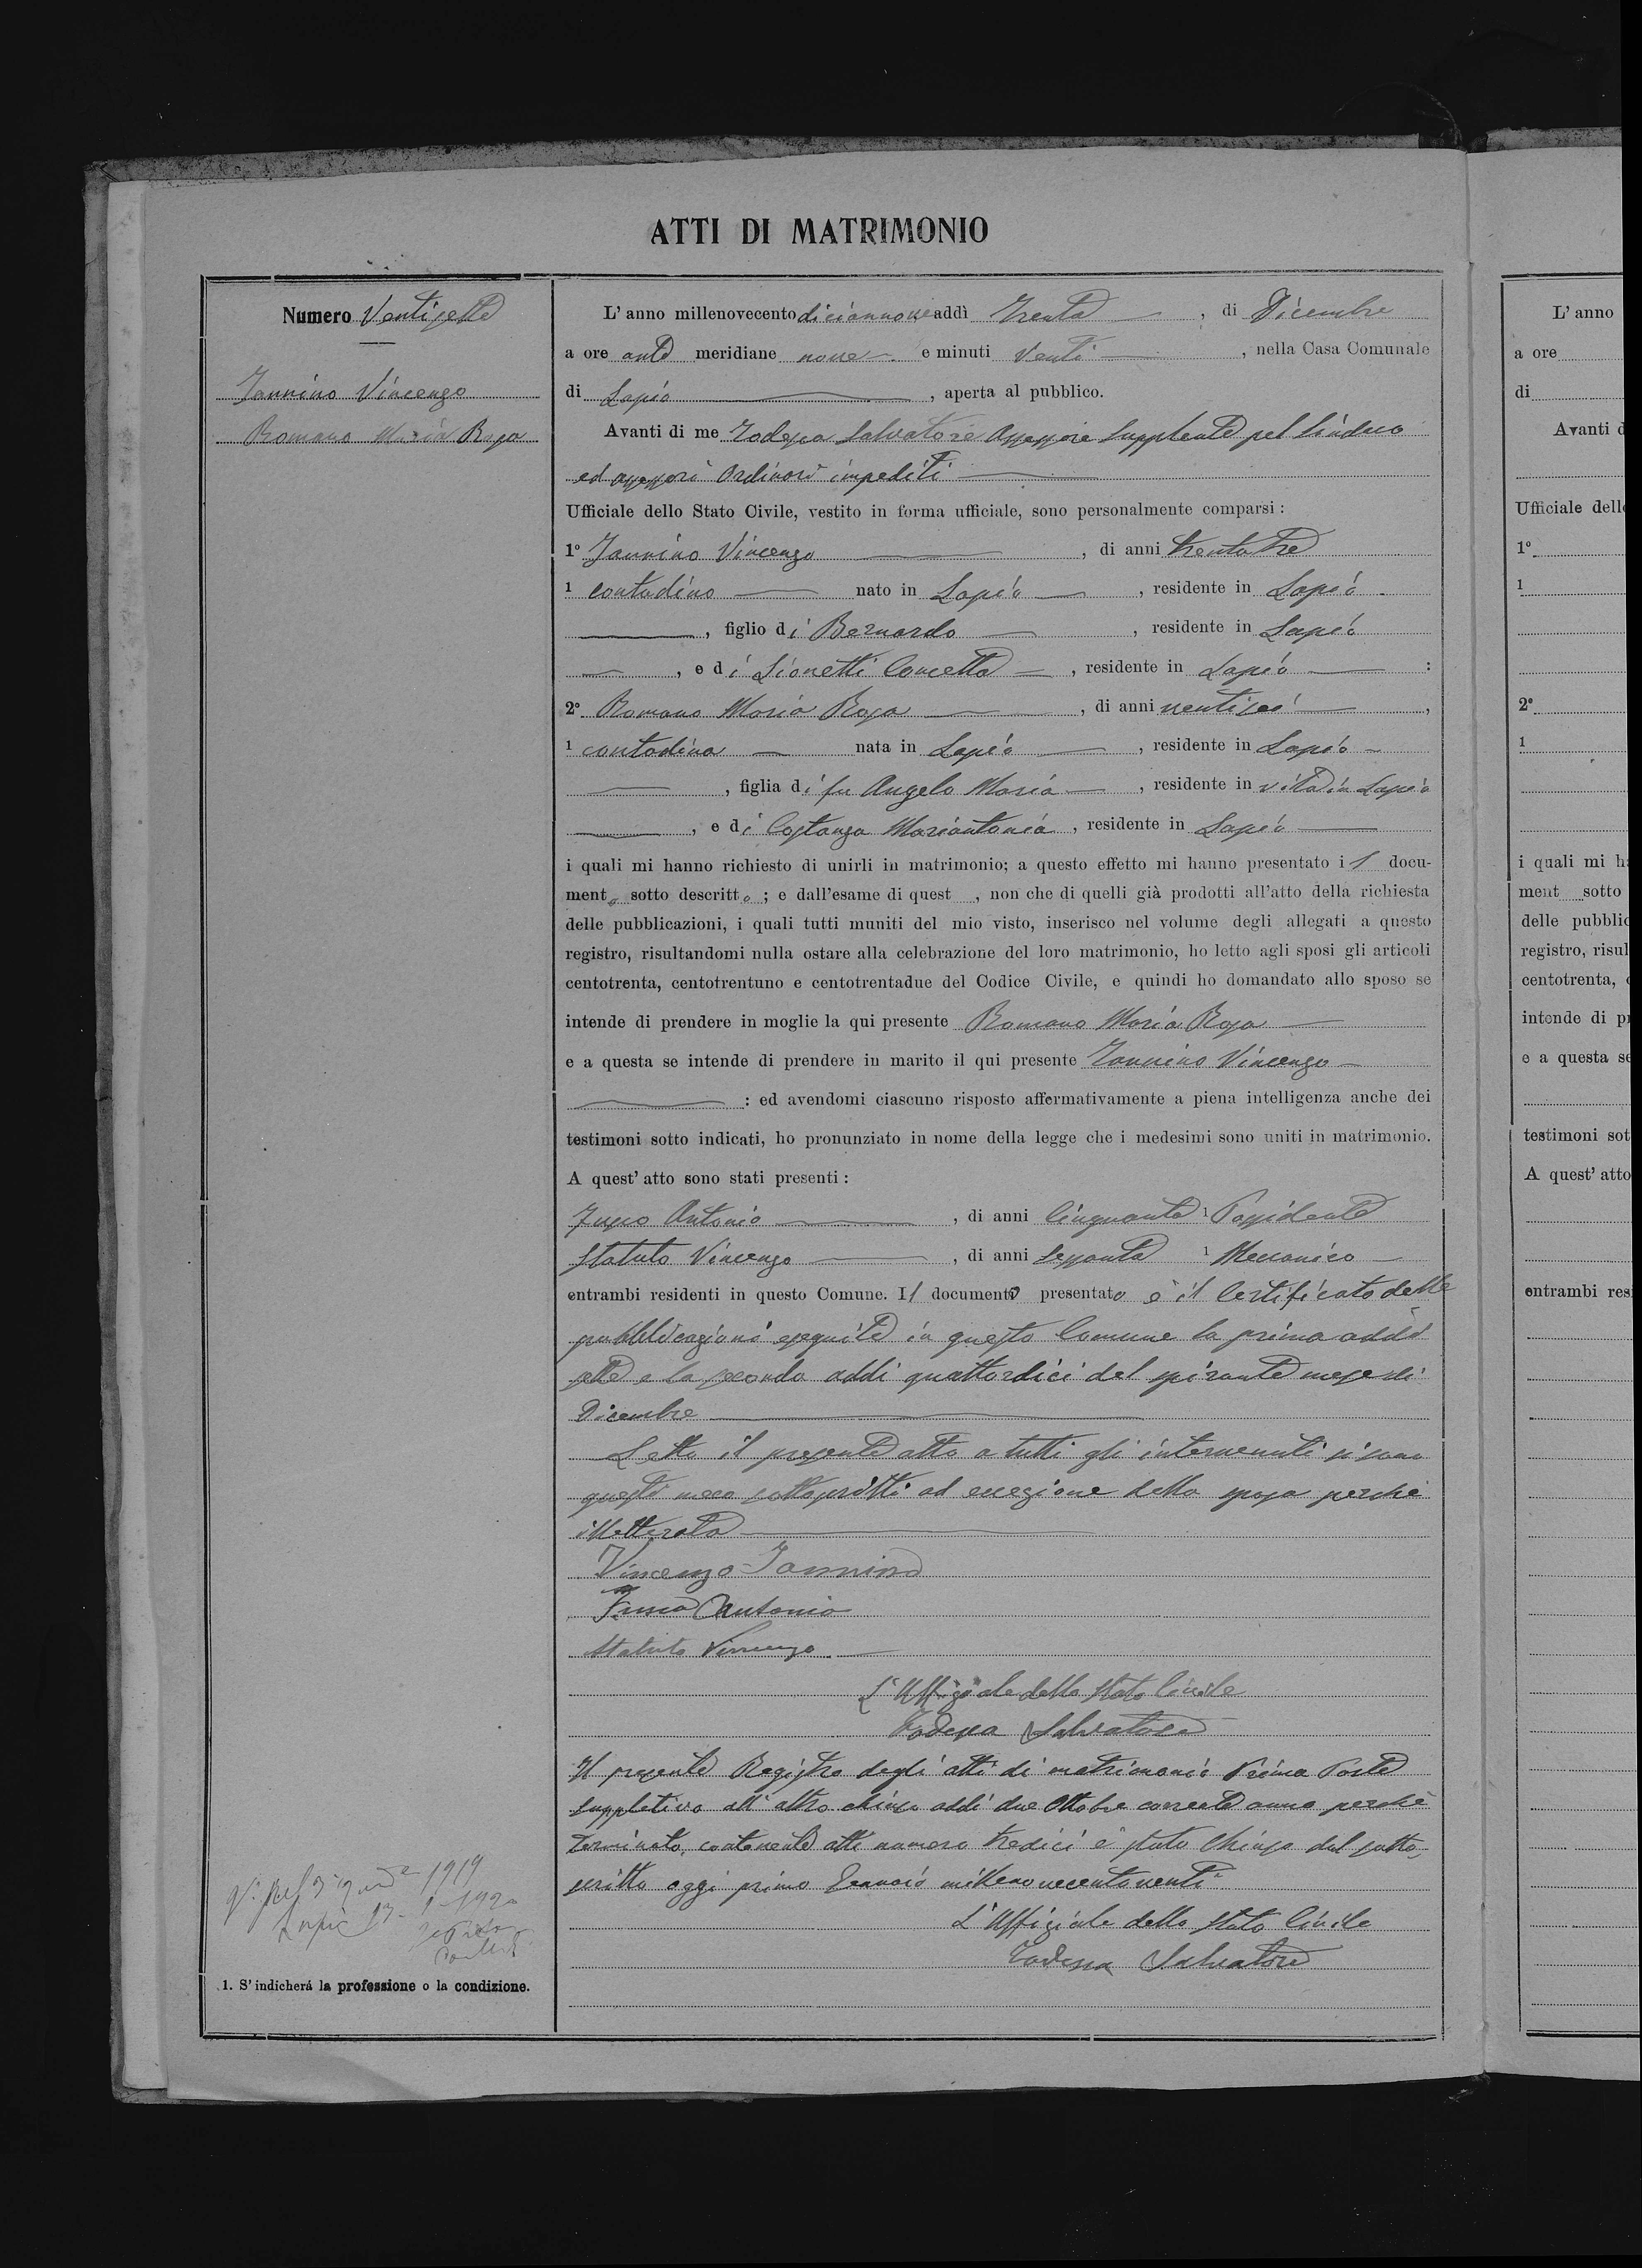 ATTI DI MATRIMONIO
Numero Ventisette
Iannino Vincenzo
Romano Maria Rosa
L'anno millenovecento diciannove addì Trenta, di Dicembre
a ore ante meridiane nove e minuti venti, nella Casa Comunale
di Lapio, aperta al pubblico.
Avanti di me Todesca Salvatore Assessore Supplente pel Sindaco
ed assessori Ordinari impediti
Ufficiale dello Stato Civile, vestito in forma ufficiale, sono personalmente comparsi:
1º Iannino Vincenzo, di anni trentatre
1 contadino nato in Lapio, residente in Lapio
, figlio di Bernardo, residente in Lapio
, e di Lionetti Concetta, residente in Lapio :
2º Romano Maria Rosa, di anni ventisei,
1 contadina nata in Lapio, residente in Lapio
, figlia di fu Angelo Maria, residente in vita in Lapio
, e di Costanza Mariantonia, residente in Lapio
i quali mi hanno richiesto di unirli in matrimonio; a questo effetto mi hanno presentato il docu-
mento sotto descritto; e dall'esame di quest , non che di quelli già prodotti all'atto della richiesta
delle pubblicazioni, i quali tutti muniti del mio visto, inserisco nel volume degli allegati a questo
registro, risultandomi nulla ostare alla celebrazione del loro matrimonio, ho letto agli sposi gli articoli
centotrenta, centotrentuno e centotrentadue del Codice Civile, e quindi ho domandato allo sposo se
intende di prendere in moglie la qui presente Romano Maria Rosa
e a questa se intende di prendere in marito il qui presente Iannino Vincenzo
: ed avendomi ciascuno risposto affermativamente a piena intelligenza anche dei
testimoni sotto indicati, ho pronunziato in nome della legge che i medesimi sono uniti in matrimonio.
A quest'atto sono stati presenti:
Antonio, di anni Cinquanta 1 Possidente
Statuto Vincenzo, di anni Sessanta 1 Meccanico
entrambi residenti in questo Comune. Il documento presentato è il Certificato delle
pubblicazioni eseguite in questo Comune la prima addì
sette e la seconda addì quattordici del spirante mese di
Dicembre
Letto il presente atto a tutti gli intervenuti si sono
questi meco sottoscritti ad eccezione della sposa perchè
illetterata
Vincenzo Iannino
Antonio
Statuto Vincenzo
L'Uffiziale dello Stato Civile
Todesca Salvatore
Il presente Registro degli atti di matrimonio Prima Parte
suppletivo all'altro chiuso addì due Ottobre corrente anno perchè
terminato, contenente atti numero tredici è stato chiuso dal sotto-
scritto oggi primo Gennaio millenovecentoventi
L'Uffiziale dello Stato Civile
Todesca Salvatore
1919
Lapio 13-1-1920
1. S'indicherà la professione o la condizione.
L'anno
a ore
di
Avanti d
Ufficiale dell
1º
1
2º
1
i quali mi h
ment sotto
delle pubblic
registro, risul
centotrenta,
intende di p
e a questa s
testimoni sot
A quest'atto
entrambi res